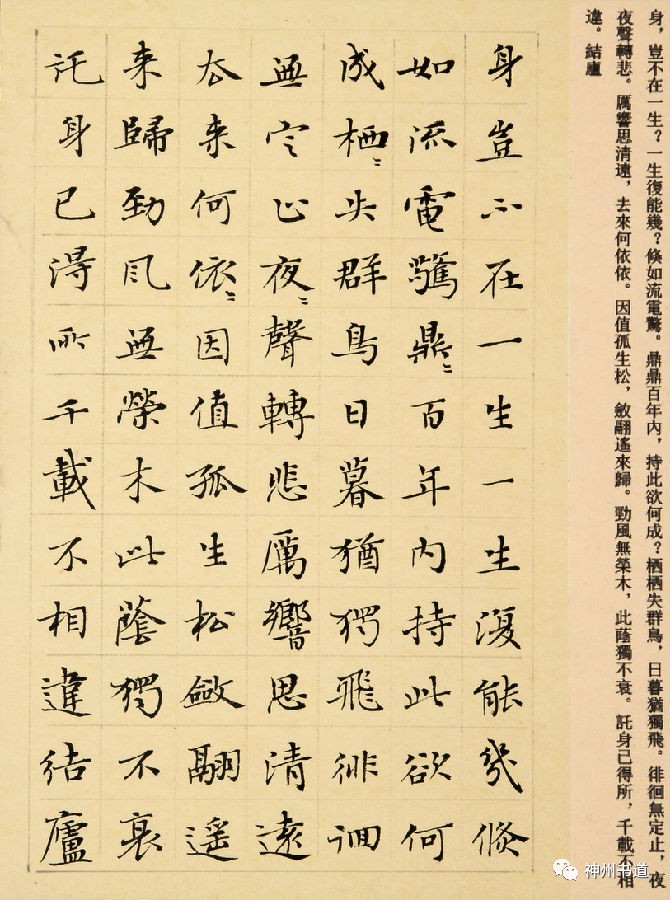 身，豈不在一生？一生復能幾？倏如流電驚。鼎鼎百年內，持此欲何成？栖栖失群鳥，日暮猶獨飛。徘徊無定止，夜
夜聲轉悲。厲響思清遠，去來何依依。因值孤生松，斂翮遙來歸。勁風無榮木，此蔭獨不衰。託身已得所，千載不相
違。結廬
身豈不在一生一生復能幾倏
如流電驚鼎〻百年內持此欲何
成栖〻失群鳥日暮猶獨飛徘徊
無定止夜〻聲轉悲厲響思清遠
去来何依〻因值孤生松斂翮遥
来歸勁風無榮木此蔭獨不衰
託身已得所千載不相違結廬
神州书道